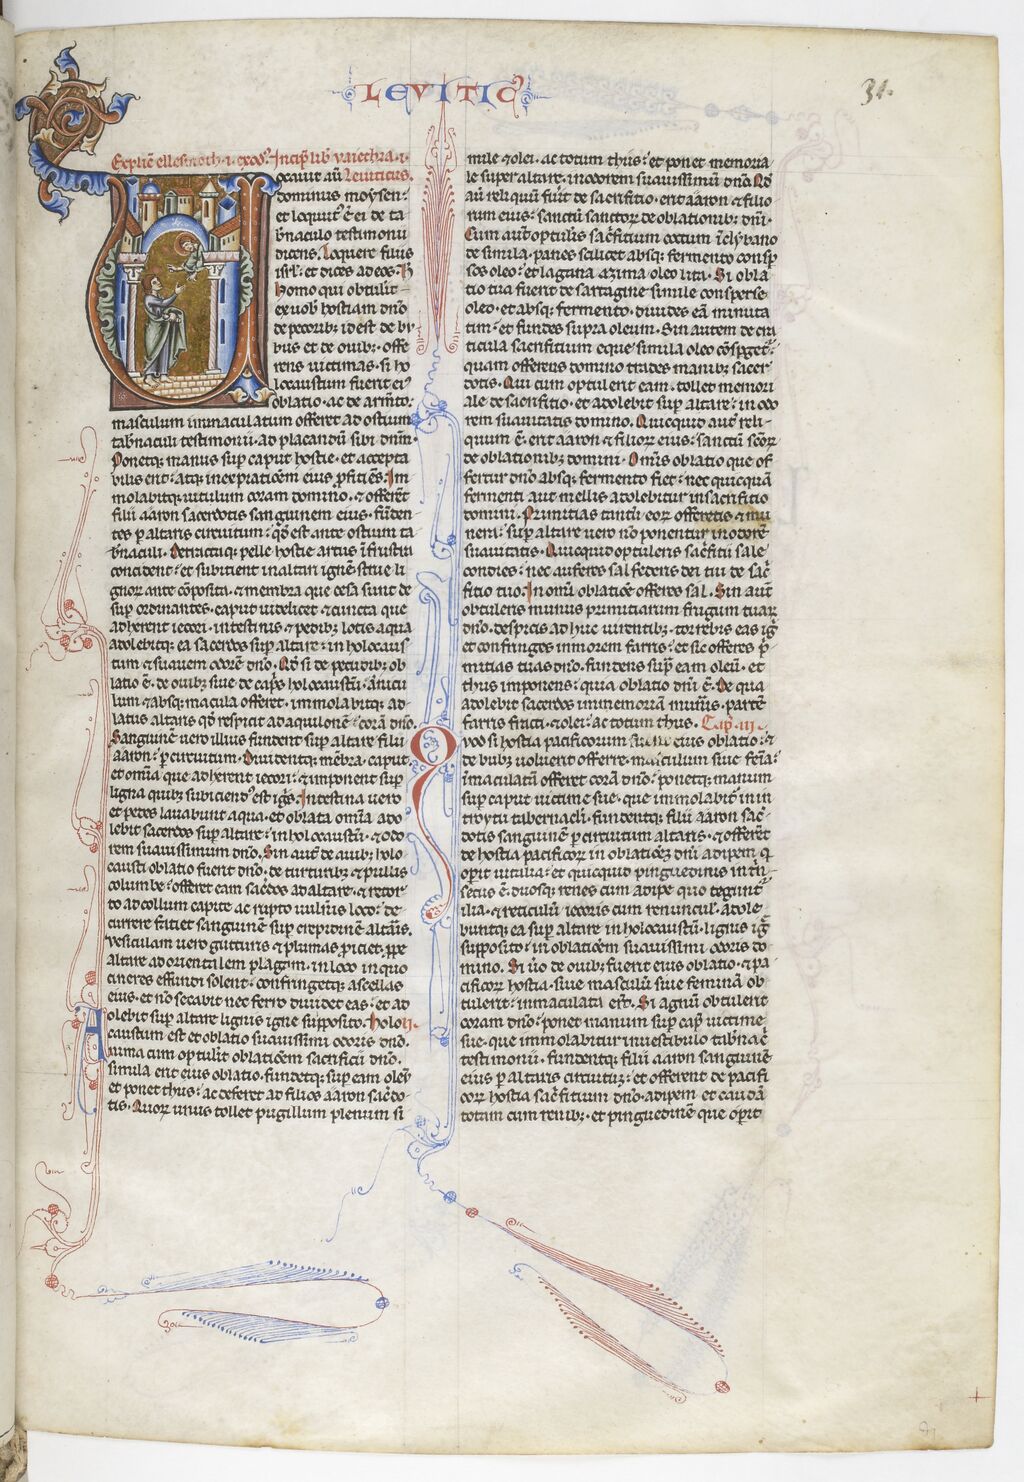 LEVITIC᾽
31.
Explic̄ ellesmoth .i. exod᾽. Incip̄ lib̄ vaiethra .i.
Leuiticus.
ocauit aūt
dominus moysen:
et locutus ē ei de ta-
b̄naculo testimonii
dicens. Loquere filiis
isrl̄: et dices ad eos:
Homo qui obtulit̄
ex uob̄ hostiam dn̄o
de pecorib;. id est de bu-
bus et de ouib;: offe-
rens uictimas. si ho-
locaustum fuerit ei᾽
oblatio. ac de arm̄to:
masculum inmaculatum offeret ad ostium
tab̄naculi testimonii. ad placandū sibi dn̄m.
Ponetq; manus sup̄ caput hostie. et accepta-
bilis erit: atq; in expiationem eius p̄ficiēs. Im-
molabitq; uitulum coram domino. & offerēt
filii aaron sacerdotis sanguinem eius. fūden-
tes p̄ altaris circuitum: qd̄ est ante ostium ta-
b̄naculi. Detractaq; pelle hostie artus ī frusta
concident: et subicient in altari ignē strue li-
gnor᾽ ante cōposita. & membra que cesa sunt de-
sup̄ ordinantes. caput uidelicet & cuncta que
adherent iecori. intestinis & pedib; lotis aqua
adolebitq; ea sacerdos sup̄ altare: in holocaus-
tum & suauem odorē dn̄o. Qd̄ si de pecudib; ob-
latio ē. de ouib; siue de cap̄s holocaustū: anicu-
lum & absq; macula offeret. immolabitq; ad
latus altaris qd̄ respicit ad aquilonē: corā dn̄o.
Sanguinē uero illius fundent sup̄ altare filii
aaron: p̄ circuitum. Diuidentq; mēbra. caput
et om̄ia que adherent iecori: & imponent sup̄
ligna quib; subiciend᾽ est ig̅s. Intestina uero
et pedes lauabunt aqua. et oblata om̄ia ado-
lebit sacerdos sup̄ altare: in holocaustū. & odo-
rem suauissimum dn̄o. Sin aut̄ de auib; holo-
causti oblatio fuerit dn̄o. de turturib; & pullis
columbe: offeret eam sac̄dos ad altare. & retor-
to ad collum capite ac rupto uuln̄is loco: de-
currere faciet sanguinē sup̄ crepidinē altaris.
Vesiculam uero gutturis & plumas p̄iciet: p̄pe
altare ad orientalem plagam. in loco in quo
cineres effundi solent: confringetq; ascellas
eius. et nō secabit nec ferro diuidet eas: et ad-
olebit sup̄ altare lignis igne supposito. Holo- .ii.
caustum est et oblatio suauissimi odoris dn̄o.
Anima cum optulit̄ oblationem sacrificii dn̄o.
simila erit eius oblatio. fundetq; sup̄ eam oleū
et ponet thus: ac deferet ad filios aaron sac̄do-
tis. Quor᾽ unus tollet pugillum plenum si-
mile & olei. ac totum thus: et ponet memoria-
le super altare. in odorem suauissimū dn̄o. Qd̄
aū reliquū fuīt de sacrifitio. erit aaron & filio-
rum eius: sanctū sanctor᾽ de oblationib; dn̄i.
Cum aut̄ optulīs sac̄fitium coctum ī clybano
de simila. panes scilicet absq; fermento consp̄-
sos oleo: et lagana azima oleo lita. Si obla-
tio tua fuerit de sartagine simile consperse
oleo. et absq; fermento. diuides eā minuta-
tim: et fundes supra oleum. Sin autem de cra-
ticula sacrifitium eque simila oleo cōsp̄get᾽:
quam offerens domino trades manib; sacer-
dotis. Qui cum optulerit eam. tollet memori-
ale de sacrifitio. et adolebit sup̄ altare: in odo-
rem suauitatis domino. Quicquid aut̄ reli-
quum ē. erit aaron & filior᾽ eius: sanctū sc̄or᾽
de oblationib; domini. Omīs oblatio que of-
fertur dn̄o absq; fermento fiet: nec quicquā
fermenti aut mellis adolebitur in sacrifitio
domini. Primitias tantū eor᾽ offeretis & mu-
nera: sup̄ altare uero nō ponentur in odorē
suauitatis. Quicquid optuleris sac̄fitii sale
condies: nec auferes sal federis dei tui de sac̄-
fitio tuo. In omī oblatiōe offeres sal. Sin aut̄
obtuleris munus primitiarum frugum tuar᾽
dn̄o. de spicis adhuc uirentib;. torrebis eas ig̅
et confringes in morem farris: et sic offeres p̄-
mitias tuas dn̄o. fundens sup̄ eam oleū. et
thus imponens: quia oblatio dn̄i ē. De qua
adolebit sacerdos in memoriā mun̄is. partē
farris fracti. & olei: ac totum thus. Cap̄. iii.
Quod si hostia pacificorum fuerit eius oblatio: &
de bub; uoluerit offerre. masculum siue femīa:
īmaculatā offeret corā dn̄o: ponetq; manum
sup̄ caput uictime sue. que immolabit᾽ in in-
troytu tabernacli. fundentq; filii aaron sac̄-
dotis sanguinē p̄ circuitum altaris. & offerēt
de hostia pacificor᾽ in oblationē dn̄i adipem q̄
op̄it uitalia: et quicquid pinguedinis int̄in-
secus ē. duosq; renes cum adipe quo tegunt᾽
ilia. & reticulū iecoris cum renuncul᾽. adole-
buntq; ea sup̄ altare in holocaustū: lignis ig̅
supposito: in oblatiōem suauissimi odoris do-
mino. Si ūo de ouib; fuerit eius oblatio. & pa-
cificor᾽ hostia. siue masculū siue feminā ob-
tulerit: inmaculata erīt. Si agnū obtulerit
coram dn̄o: ponet manum sup̄ cap̄ uictime
sue. que immolabitur in uestibulo tab̄nac̄li
testimonii. fundentq; filii aaron sanguinē
eius p̄ altaris circuitū: et offerent de pacifi-
cor᾽ hostia sac̄fitium dn̄o. adipem et caudā
totam cum renib;. et pinguedinē que op̄it